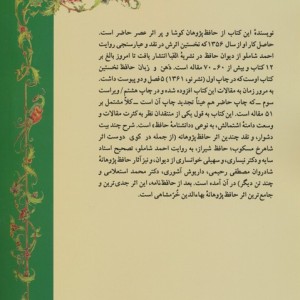 نویسندهٔ این کتاب از حافظ‌پژوهان کوشا و پر اثر عصر حاضر است.
حاصل کار او از سال ۱۳۵۶ که نخستین اثرش در نقد و عیارسنجی روایت
احمد شاملو از دیوان حافظ در نشریهٔ الفبا انتشار یافت تا امروز بالغ بر
۱۲ کتاب و بیش از ۶۰ ـ ۷۰ مقاله است. ذهن و زبان حافظ نخستین
کتاب اوست که در چاپ اول (نشر نو، ۱۳۶۱) ۵ فصل و دو پیوست داشت.
به مرور زمان به مقالات این کتاب افزوده شده و در چاپ هشتم / ویراست
سوم ـ که چاپ حاضر هم عیناً تجدید چاپ آن است ـ کلاً مشتمل بر
۵۱ مقاله است. این کتاب به قول یکی از منتقدان نظر به کثرت مقالات و
وسعت دامنهٔ اشتمالش، به نوعی «دانشنامهٔ حافظ» است. شرح چند بیت
دشوار، و نقد چندین اثر حافظ‌پژوهانه (از جمله در کوی دوست اثر
شاهرخ مسکوب؛ حافظ شیراز، به روایت احمد شاملو، تصحیح استاد
سایه و دکتر نیساری، و سهیلی خوانساری از دیوان، و نیز آثار حافظ‌پژوهانهٔ
شادروان مصطفی رحیمی، داریوش آشوری، دکتر محمد استعلامی و
چند تن دیگر) در آن آمده است. بعد از حافظ‌نامه، این اثر جدی‌ترین و
جامع‌ترین اثر حافظ‌پژوهانهٔ بهاءالدین خرّمشاهی است.